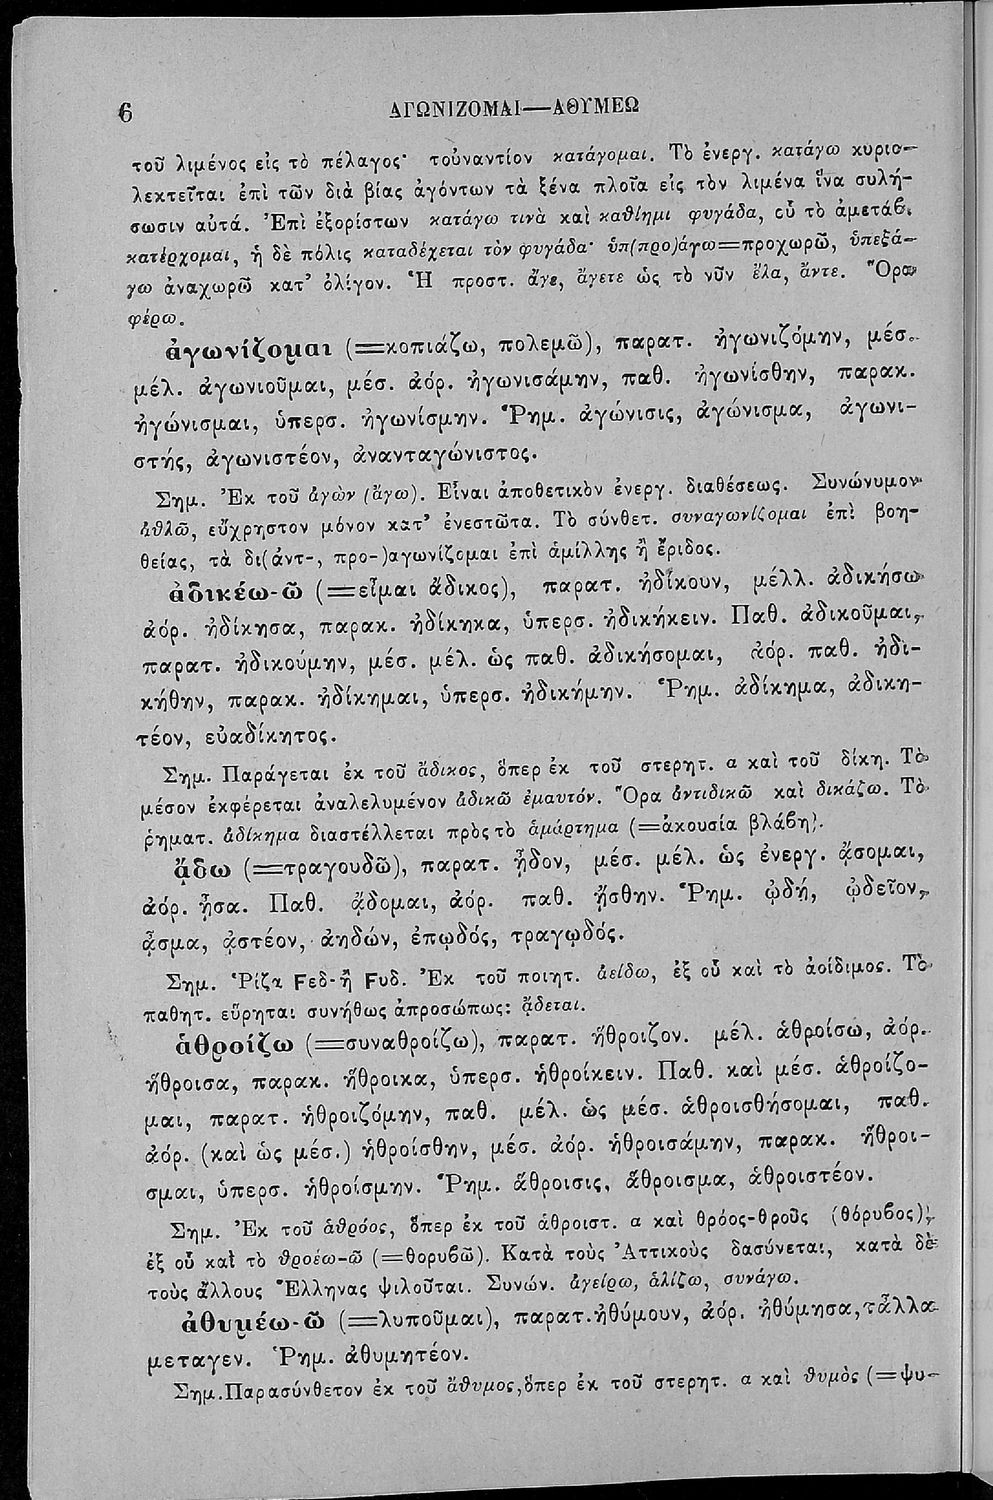 6
ΑΓΩΝΙΖΟΜΑΙ—ΑΘΥΜΕΩ
τοῦ λιμένος εἰς τὸ πέλαγος· τοὐναντίον κατάγομαι. Τὸ ἐνεργ. κατάγω κυριο-
λεκτεῖται ἐπὶ τῶν διὰ βίας ἀγόντων τὰ ξένα πλοῖα εἰς τὸν λιμένα ἵνα συλή-
σωσιν αὐτά. Ἐπὶ ἐξορίστων κατάγω τινὰ καὶ καθίημι φυγάδα, οὗ τὸ ἀμετάβ.
κατέρχομαι, ἡ δὲ πόλις καταδέχεται τὸν φυγάδα· ὑπ(προ)άγω=προχωρῶ, ὑπεξά-
γω ἀναχωρῶ κατ' ὀλίγον. Ἡ προστ. ἄγε, ἄγετε ὡς τὸ νῦν ἔλα, ἄντε. Ὅρα
φέρω.
ἀγωνίζομαι (=κοπιάζω, πολεμῶ), παρατ. ἠγωνιζόμην, μέσ.
μέλ. ἀγωνιοῦμαι, μέσ. ἀόρ. ἠγωνισάμην, παθ. ἠγωνίσθην, παρακ.
ἠγώνισμαι, ὑπερσ. ἠγωνίσμην. Ῥημ. ἀγώνισις, ἀγώνισμα, ἀγωνι-
στής, ἀγωνιστέον, ἀνανταγώνιστος.
Σημ. Ἐκ τοῦ ἀγὼν (ἄγω). Εἶναι ἀποθετικὸν ἐνεργ. διαθέσεως. Συνώνυμον
ἀθλῶ, εὔχρηστον μόνον κατ' ἐνεστῶτα. Τὸ σύνθετ. συναγωνίζομαι ἐπὶ βοη-
θείας, τὰ δι(ἀντ-, προ-)αγωνίζομαι ἐπὶ ἁμίλλης ἢ ἔριδος.
ἀδικέω-ῶ (=εἶμαι ἄδικος), παρατ. ἠδίκουν, μέλλ. ἀδικήσω
ἀόρ. ἠδίκησα, παρακ. ἠδίκηκα, ὑπερσ. ἠδικήκειν. Παθ. ἀδικοῦμαι,
παρατ. ἠδικούμην, μέσ. μέλ. ὡς παθ. ἀδικήσομαι, ἀόρ. παθ. ἠδι-
κήθην, παρακ. ἠδίκημαι, ὑπερσ. ἠδικήμην. Ῥημ. ἀδίκημα, ἀδικη-
τέον, εὐαδίκητος.
Σημ. Παράγεται ἐκ τοῦ ἄδικος, ὅπερ ἐκ τοῦ στερητ. α καὶ τοῦ δίκη. Τὸ
μέσον ἐκφέρεται ἀναλελυμένον ἀδικῶ ἐμαυτόν. Ὅρα ἀντιδικῶ καὶ δικάζω. Τὸ
ῥηματ. ἀδίκημα διαστέλλεται πρὸς τὸ ἁμάρτημα (=ἀκουσία βλάβη).
ᾄδω (=τραγουδῶ), παρατ. ᾖδον, μέσ. μέλ. ὡς ἐνεργ. ᾄσομαι,
ἀόρ. ᾖσα. Παθ. ᾄδομαι, ἀόρ. παθ. ᾔσθην. Ῥημ. ᾠδή, ᾠδεῖον,
ᾆσμα, ᾀστέον, ἀηδών, ἐπῳδός, τραγῳδός.
Σημ. Ῥίζα Fεδ-ἢ Fυδ. Ἐκ τοῦ ποιητ. ἀείδω, ἐξ οὗ καὶ τὸ ἀοίδιμος. Τὸ
παθητ. εὕρηται συνήθως ἀπροσώπως: ᾄδεται.
ἁθροίζω (=συναθροίζω), παρατ. ἥθροιζον. μέλ. ἁθροίσω, ἀόρ.
ἥθροισα, παρακ. ἥθροικα, ὑπερσ. ἡθροίκειν. Παθ. καὶ μέσ. ἁθροίζο-
μαι, παρατ. ἡθροιζόμην, παθ. μέλ. ὡς μέσ. ἁθροισθήσομαι, παθ.
ἀόρ. (καὶ ὡς μέσ.) ἡθροίσθην, μέσ. ἀόρ. ἡθροισάμην, παρακ. ἥθροι-
σμαι, ὑπερσ. ἡθροίσμην. Ῥημ. ἅθροισις, ἅθροισμα, ἁθροιστέον.
Σημ. Ἐκ τοῦ ἁθρόος, ὅπερ ἐκ τοῦ ἀθροιστ. α καὶ θρόος-θροῦς (θόρυβος),
ἐξ οὗ καὶ τὸ θροέω-ῶ (=θορυβῶ). Κατὰ τοὺς Ἀττικοὺς δασύνεται, κατὰ δὲ
τοὺς ἄλλους Ἕλληνας ψιλοῦται. Συνών. ἀγείρω, ἁλίζω, συνάγω.
ἀθυμέω-ῶ (=λυποῦμαι), παρατ.ἠθύμουν, ἀόρ. ἠθύμησα,τἆλλα
μεταγεν. Ῥημ. ἀθυμητέον.
Σημ.Παρασύνθετον ἐκ τοῦ ἄθυμος,ὅπερ ἐκ τοῦ στερητ. α καὶ θυμὸς (=ψυ-